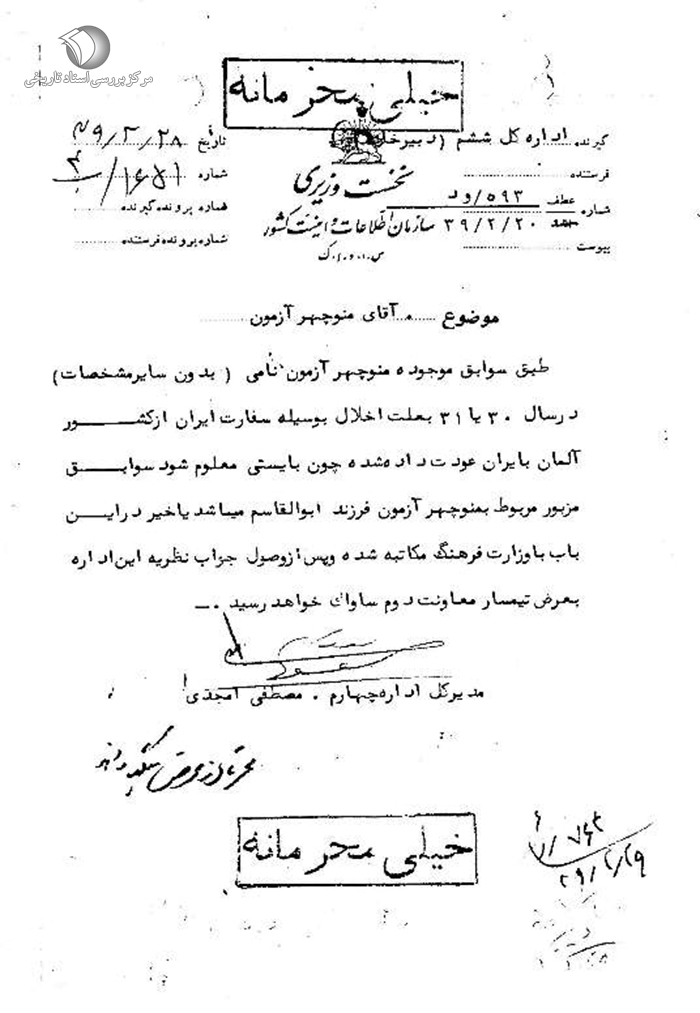 مرکز بررسی اسناد تاریخی
خیلی محرمانه
گیرنده اداره کل ششم (دبیرخانه
تاریخ ۳۹/۲/۲۸
فرستنده
نخست وزیری
شماره
شماره عطف ۵۹۳/ود
شماره پرونده گیرنده
۳۹/۲/۲۰
سازمان اطلاعات و امنیت کشور
پیوست
شماره پرونده فرستنده
س.ا.و.ا.ک
موضوع آقای منوچهر آزمون
طبق سوابق موجوده منوچهر آزمون نامی (بدون سایر مشخصات)
در سال ۳۰ یا ۳۱ بعلت اخلال بوسیله سفارت ایران از کشور
آلمان بایران عودت داده شده چون بایستی معلوم شود سوابق
مزبور مربوط بمنوچهر آزمون فرزند ابوالقاسم میباشد یا خیر در این
باب با وزارت فرهنگ مکاتبه شده و پس از وصول جواب نظریه این اداره
بعرض تیمسار معاونت دوم ساواک خواهد رسید .ــ
مدیر کل اداره چهارم . مصطفی امجدی
خیلی محرمانه